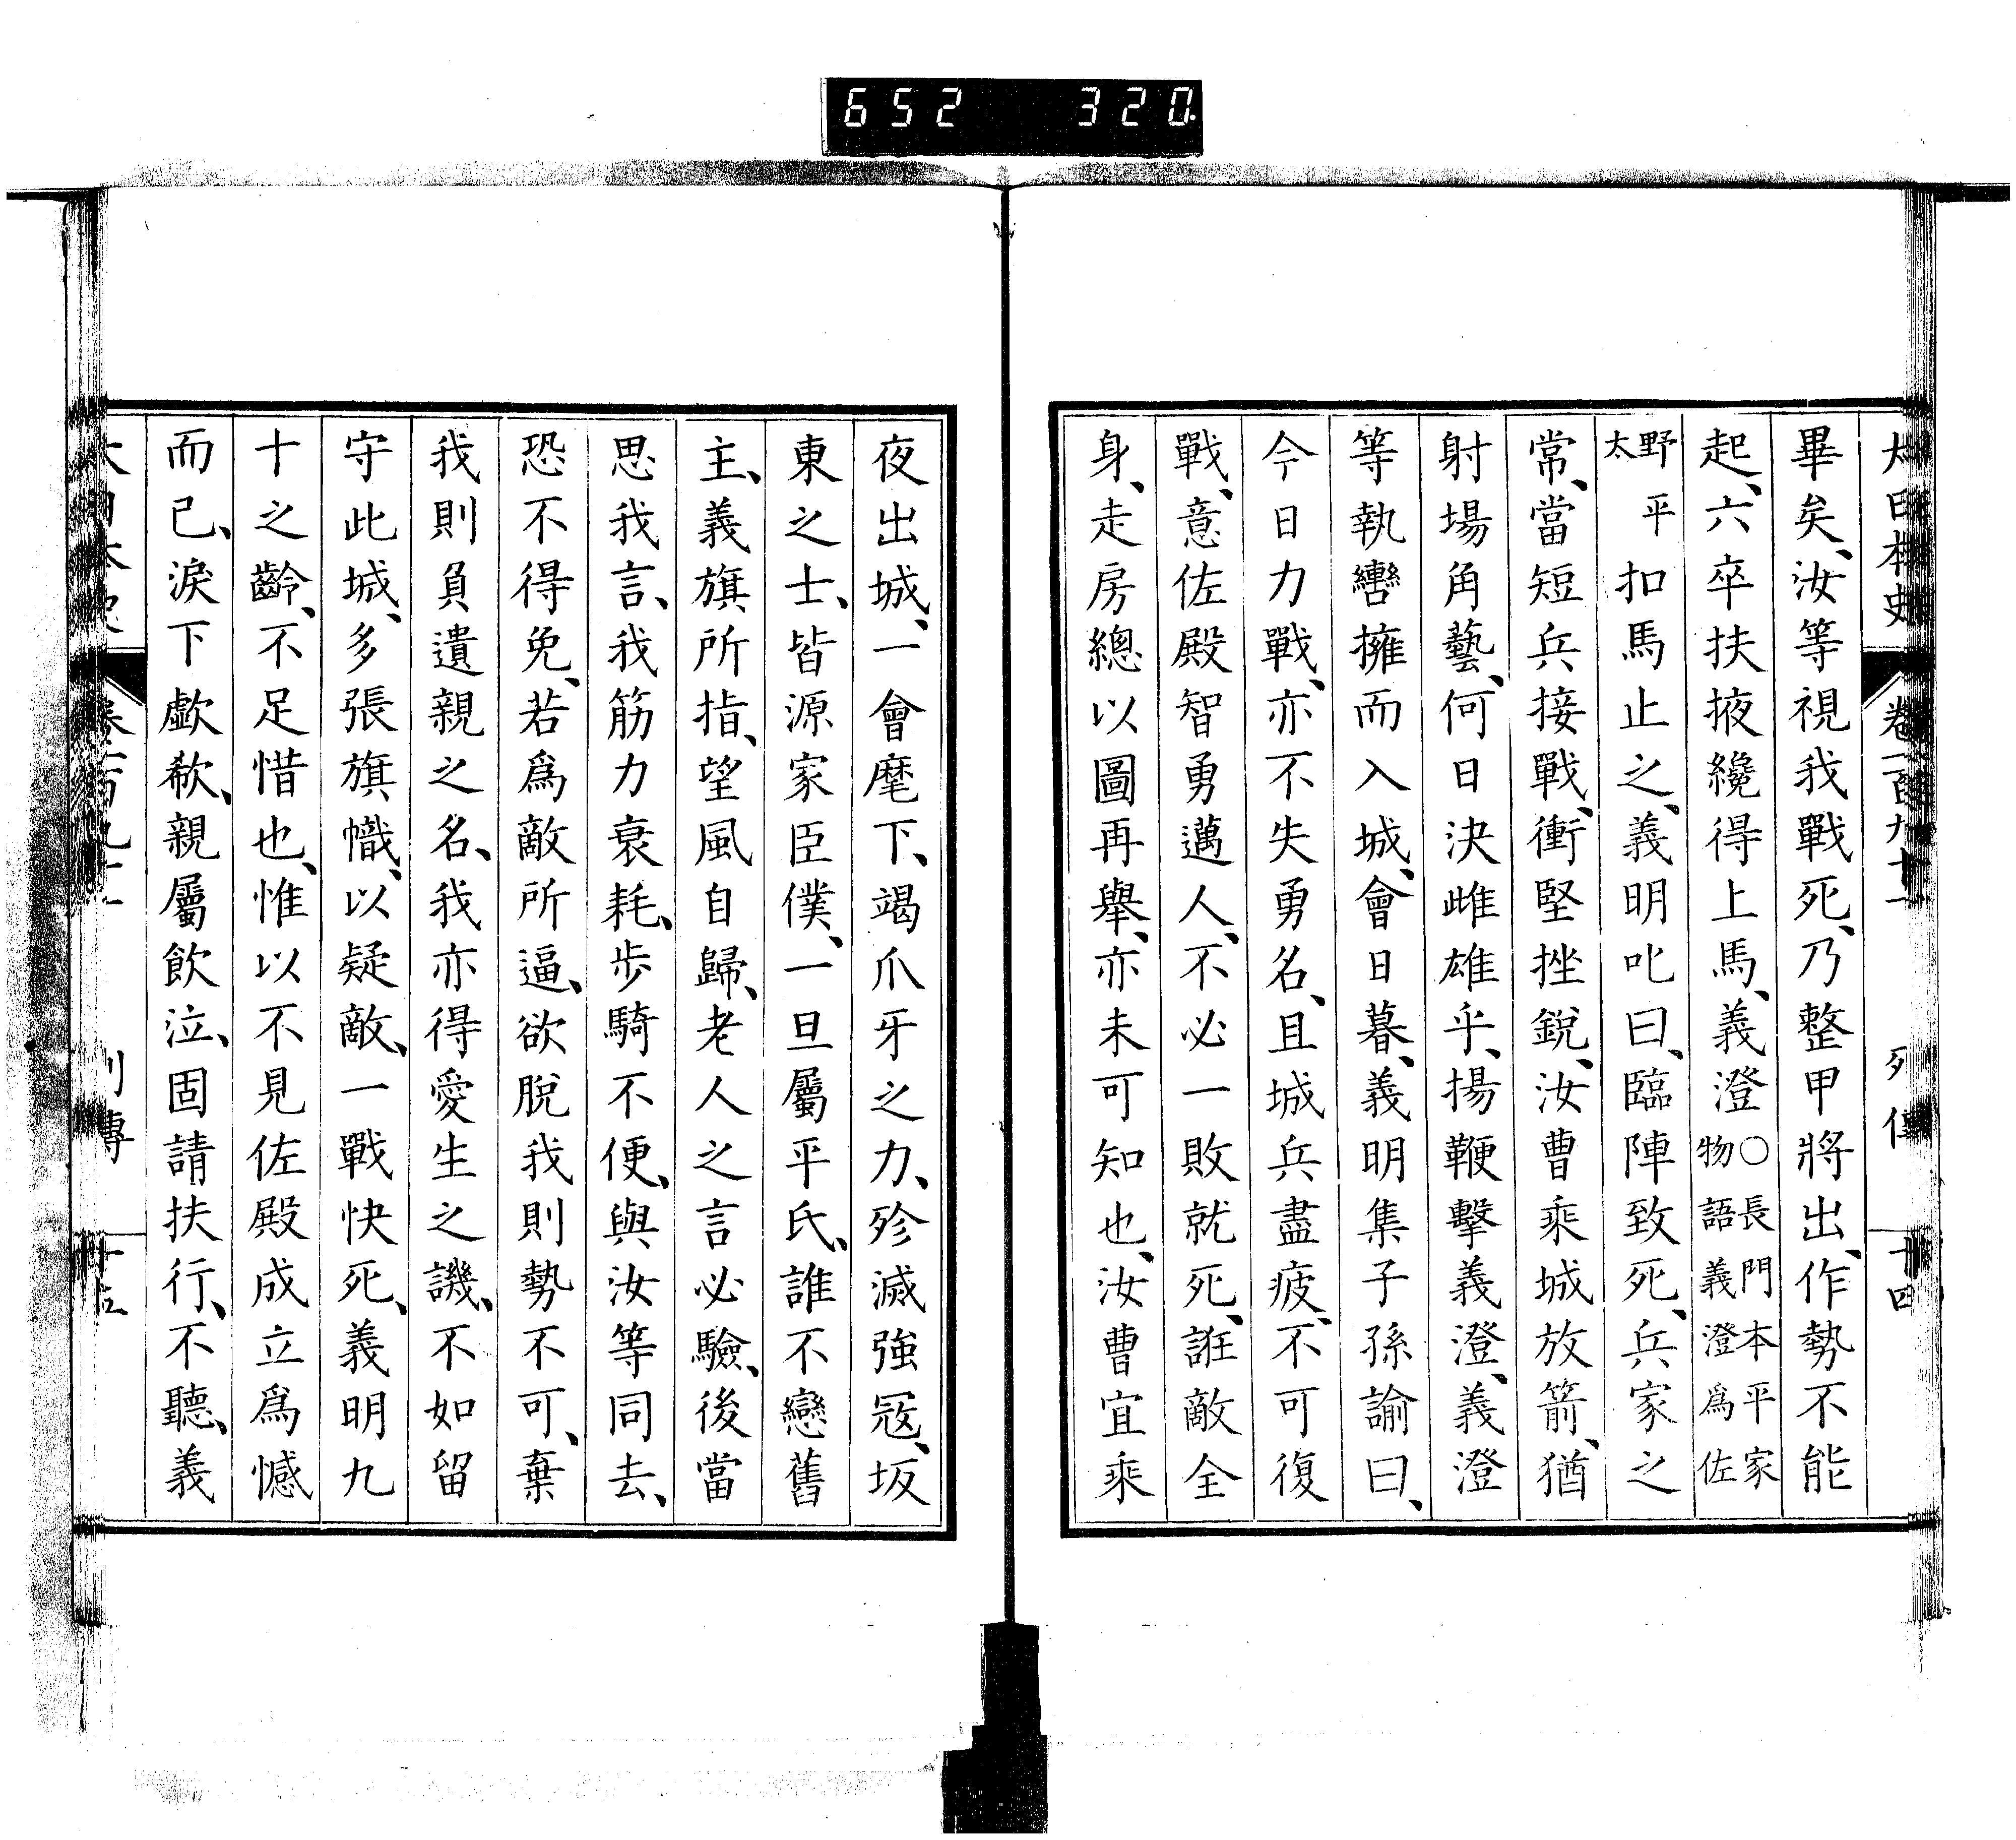 652 320
大日本史 卷一百九十一 列傳 十四
畢矣、汝等視我戰死、乃整甲將出、作勢不能
起、六卒扶掖纔得上馬、義澄○長門本平家物語義澄爲佐
野平太扣馬止之、義明叱曰、臨陣致死、兵家之
常、當短兵接戰、衝堅挫銳、汝曹乘城放箭、猶
射場角藝、何日決雌雄乎、揚鞭擊義澄、義澄
等執轡擁而入城、會日暮、義明集子孫諭曰、
今日力戰、亦不失勇名、且城兵盡疲、不可復
戰、意佐殿智勇邁人、不必一敗就死、誑敵全
身、走房總以圖再舉、亦未可知也、汝曹宜乘
夜出城、一會麾下、竭爪牙之力、殄滅強冦、坂
東之士、皆源家臣僕、一旦屬平氏、誰不戀舊
主、義旗所指、望風自歸、老人之言必驗、後當
思我言、我筋力衰耗、步騎不便、與汝等同去、
恐不得免、若爲敵所逼、欲脫我則勢不可、棄
我則負遺親之名、我亦得愛生之譏、不如留
守此城、多張旗幟、以疑敵、一戰快死、義明九
十之齡、不足惜也、惟以不見佐殿成立爲憾
而已、淚下歔欷、親屬飲泣、固請扶行、不聽、義
列傳